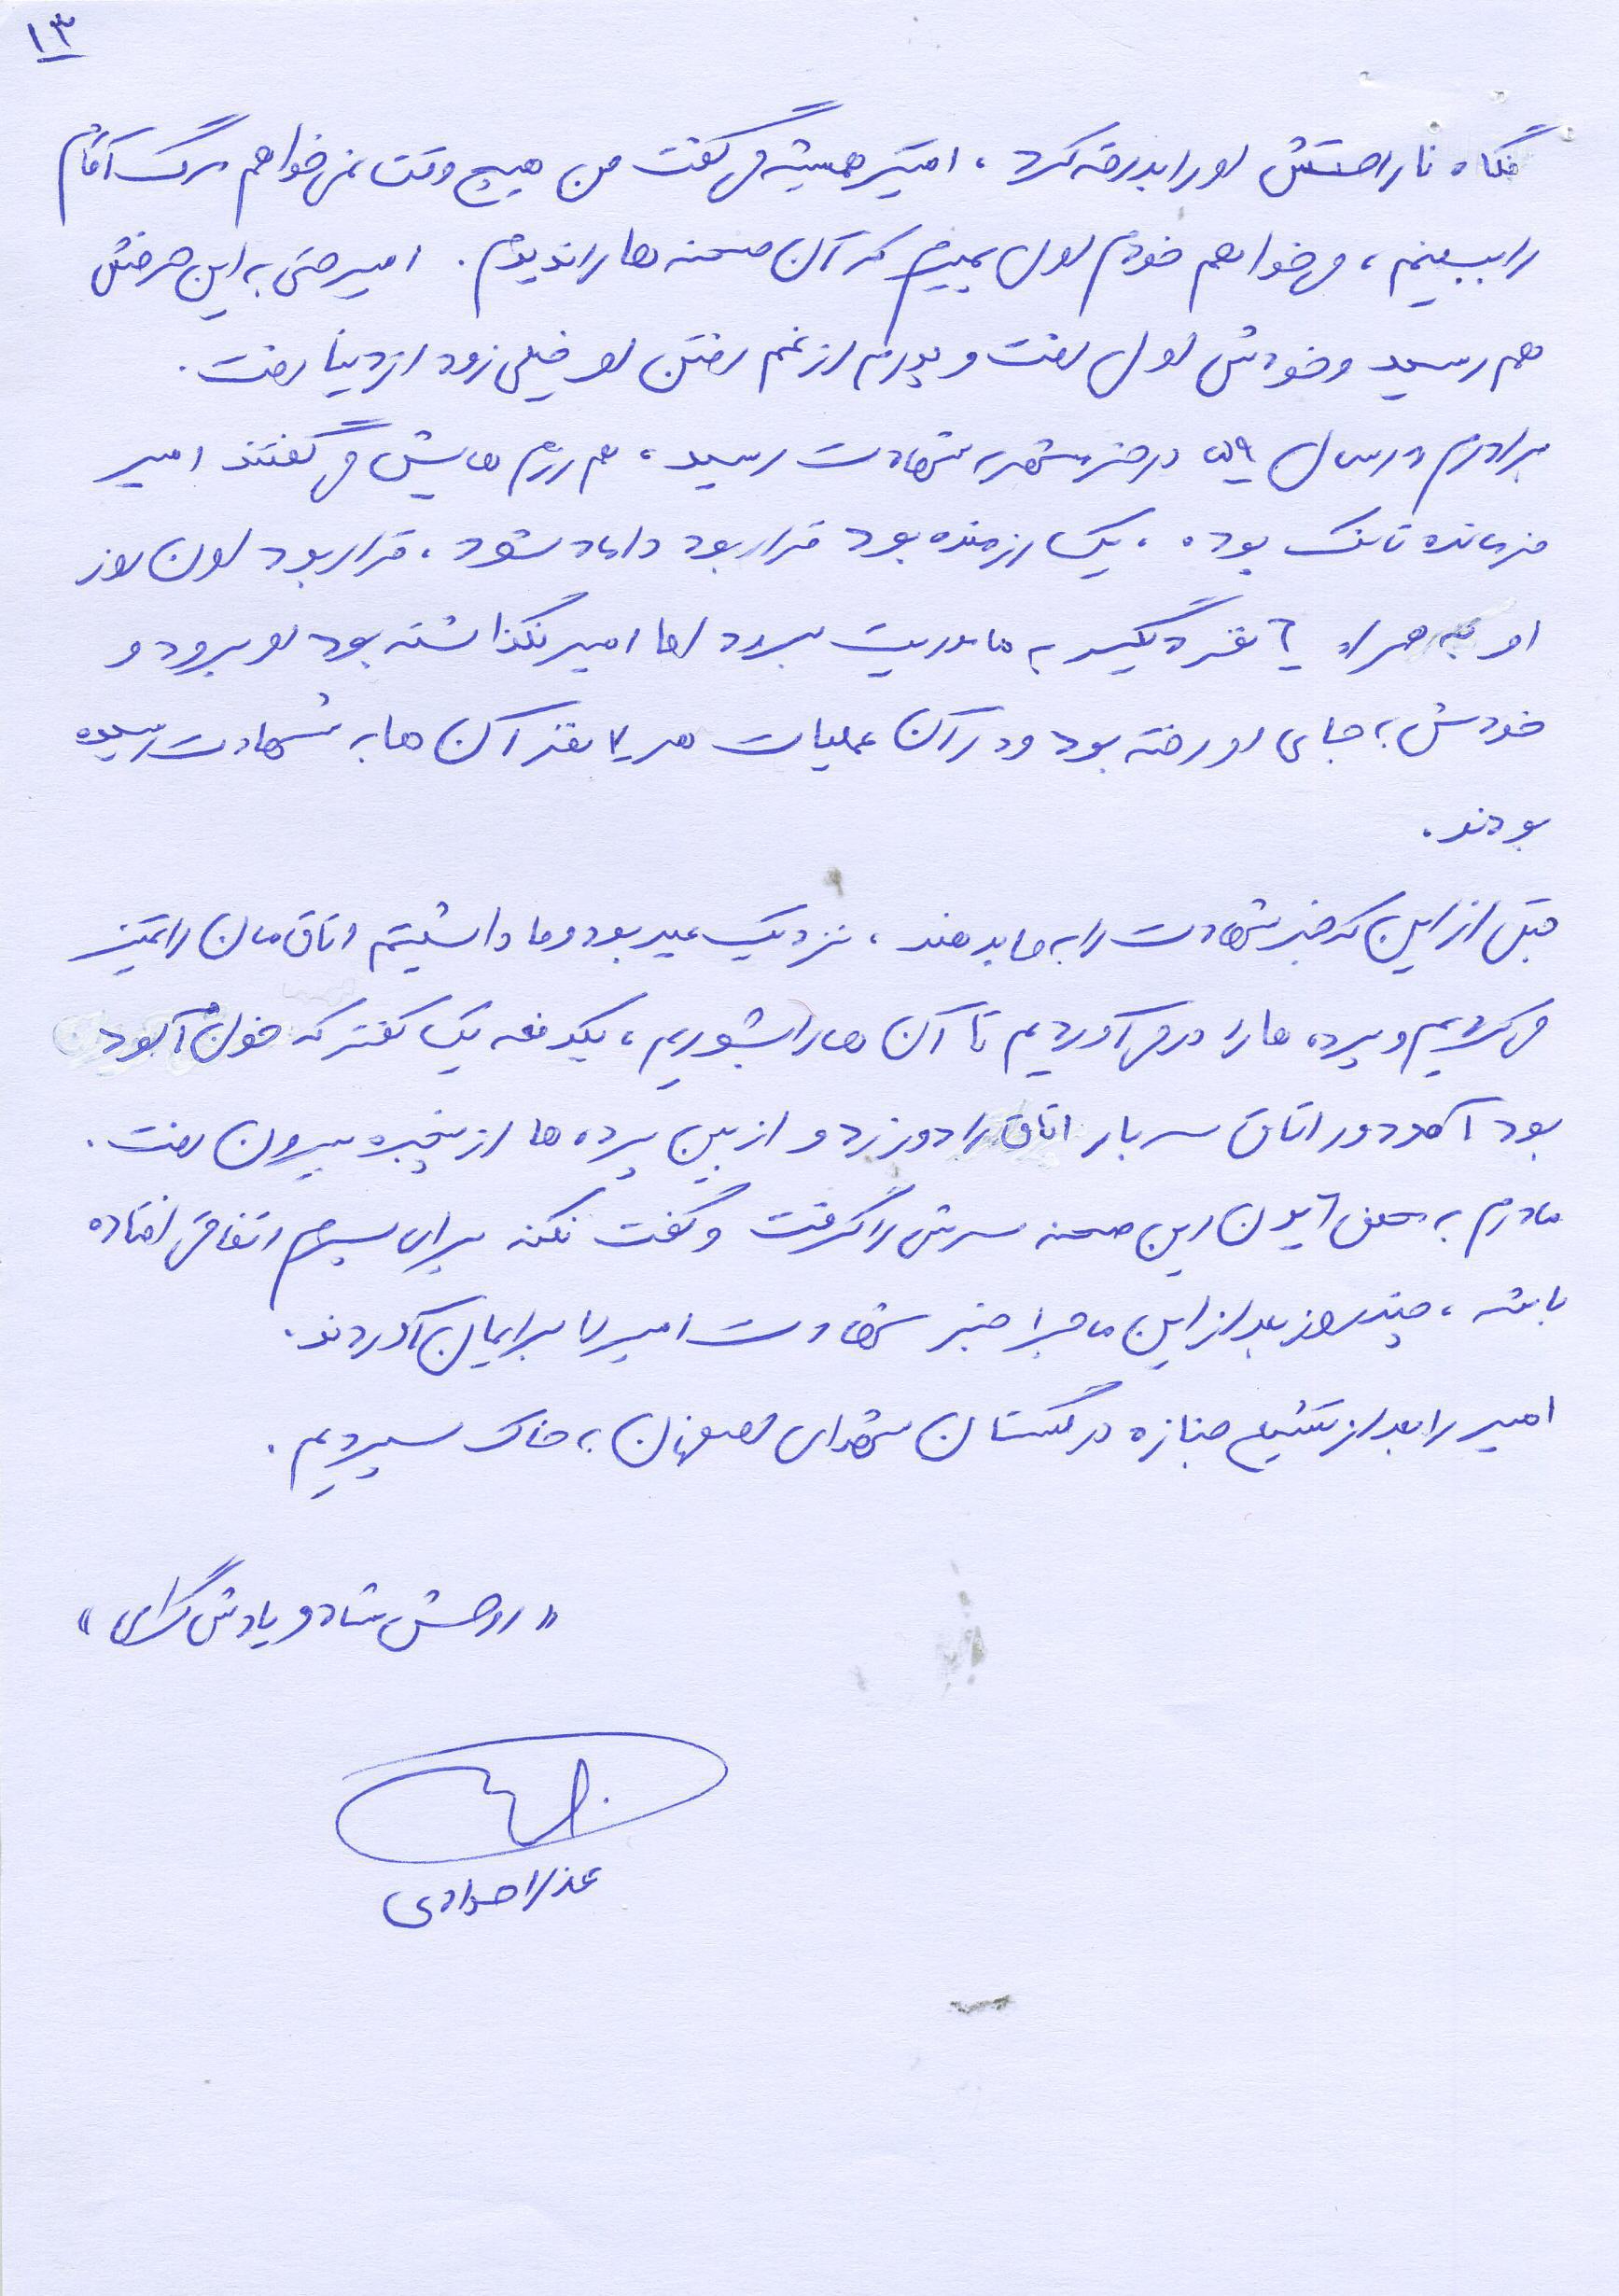 ۱۳
نگاه ناراحتش او را بدرقه کرد ، امیر همیشه می گفت من هیچ وقت نمی خواهم مرگ آقام
را ببینم ، می خواهم خودم اول بمیرم که آن صحنه ها را نبینم . امیر حتی به این حرفش
هم رسید و خودش اول رفت و پدرم از غم رفتن او خیلی زود از دنیا رفت .
برادرم در سال ۵۹ در خرمشهر به شهادت رسید ، هم رزم هایش می گفتند امیر
فرمانده تانک بوده ، یک رزمنده بود قرار بود داماد شود ، قرار بود اون روز
او به همراه ۶ نفر دیگر به ماموریت برود اما امیر نگذاشته بود او برود و
خودش به جای او رفته بود و در آن عملیات هر ۷ نفر آن ها به شهادت رسیده
بودند .
قبل از این که خبر شهادت را به ما بدهند ، نزدیک عید بود و ما داشتیم اتاق مان را تمیز
می کردیم و پرده ها را در می آوردیم تا آن ها را بشوریم ، یکدفعه یک کفتر که خون آلود
بود آمد و در اتاق سه بار اتاق را دور زد و از بین پرده ها از پنجره بیرون رفت .
مادرم به محض دیدن این صحنه سرش را گرفت و گفت نکنه برای پسرم اتفاقی افتاده
باشه ، چند روز بعد از این ماجرا خبر شهادت امیر را برایمان آوردند .
امیر را بعد از تشییع جنازه در گلستان شهدای اصفهان به خاک سپردیم .
« روحش شاد و یادش گرامی »
عذرا مرادی